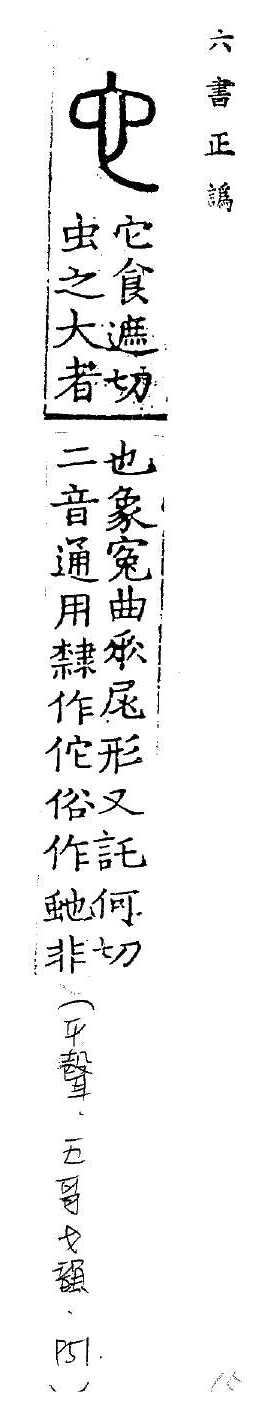 六書正譌
它食遮切
虫之大者
也象寃曲𠂹尾形又託何切
二音通用隸作佗俗作虵非
(平聲．五哥戈韻．P51.)